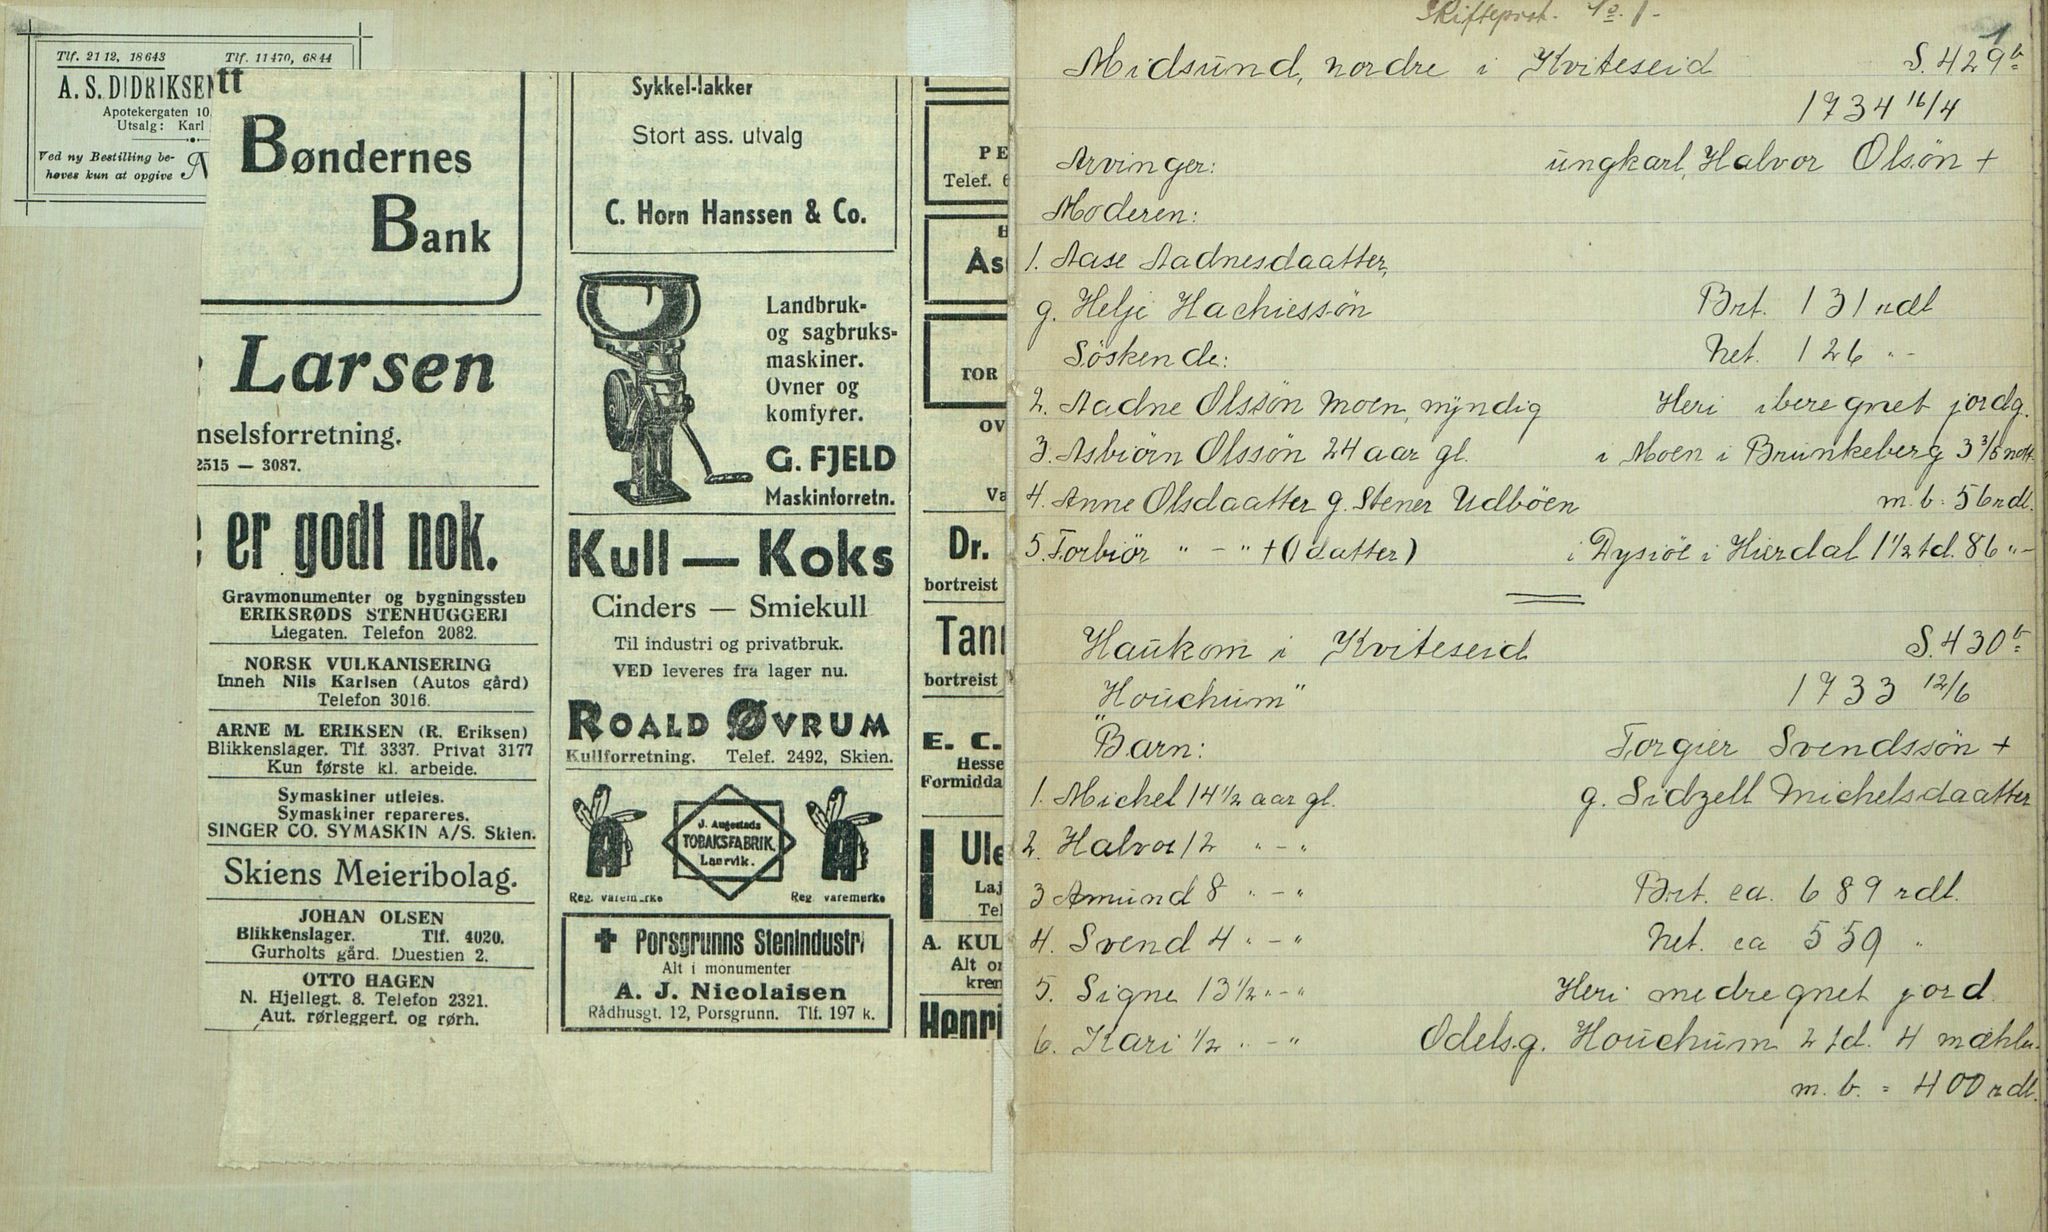 Tlf. 2112, 18643 Tlf. 11470, 6844
A. S. DIDRIKSEN
Apotekergaten 10.
Utsalg: Karl
Ved ny Bestilling be-
høves kun at opgive
tt
Bøndernes
Bank
Larsen
nselsforretning.
2515 — 3087.
er godt nok.
Gravmonumenter og bygningssten
ERIKSRØDS STENHUGGERI
Liegaten. Telefon 2082.
NORSK VULKANISERING
Inneh Nils Karlsen (Autos gård)
Telefon 3016.
ARNE M. ERIKSEN (R. Eriksen)
Blikkenslager. Tlf. 3337. Privat 3177
Kun første kl. arbeide.
Symaskiner utleies.
Symaskiner repareres.
SINGER CO. SYMASKIN A/S. Skien.
Skiens Meieribolag.
JOHAN OLSEN
Blikkenslager. Tlf. 4020.
Gurholts gård. Duestien 2.
OTTO HAGEN
N. Hjellegt. 8. Telefon 2321.
Aut. rørleggerf. og rørh.
Sykkel-lakker
Stort ass. utvalg
C. Horn Hanssen & Co.
Landbruk-
og sagbruks-
maskiner.
Ovner og
komfyrer.
G. FJELD
Maskinforretn.
Kull — Koks
Cinders — Smiekull
Til industri og privatbruk.
VED leveres fra lager nu.
ROALD ØVRUM
Kullforretning. Telef. 2492, Skien.
J. Augestads
TOBAKSFABRIK.
Laurvik.
Reg. varemerke Reg varemerke
Porsgrunns Stenindustri
Alt i monumenter
A. J. Nicolaisen
Rådhusgt. 12, Porsgrunn. Tlf. 197 k.
PE
Telef. 6
Ås
TOR
OV
Va
Dr.
bortreist
Tann
bortreist
E. C.
Hesse
Formidda
Ule
Laj
Tel
A. KUL
Alt or
krem
Henri
Skifteprot. No. 1.
1
Midsund, nordre i Kviteseid S. 429b
1734 16/4
Arvinger: ungkarl, Halvor Olsøn +
Moderen:
1. Aase Aadnesdaatter,
g. Helje Hachiessøn Brt. 131 rdl
Søskende: Net. 126 " -
2. Aadne Olssøn Moen, myndig Heri iberegnet jordg.
3. Asbiørn Olssøn 24 aar gl. i Moen i Brunkeberg 3 3/8 nott.
4. Anne Olsdaatter g. Stener Udbøen m. b. 56 rdl.
5. Torbiør " - " + (1 datter) i Dysiøe i Hierdal 1 1/2 td. 86 " -
Haukom i Kviteseid S. 430b
"Houchum" 1733 12/6
Barn: Torgier Svendssøn +
1. Michel 14 1/2 aar gl. g. Sidzell Michelsdaatter
2. Halvor 12 " - "
3 Amund 8 " - " Brt. ca. 689 rdl.
4. Svend 4 " - " Net. ca 559 "
5. Signe 13 1/2 " - " Heri medregnet jord
6. Kari 1/2 " - " Odelsg. Houchum 2 td. 4 mæhler
m. b. = 400 rdl.